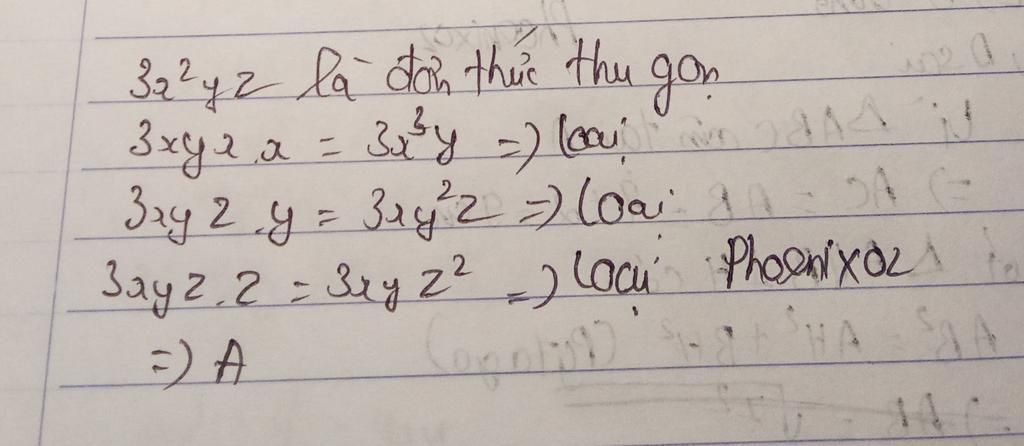 3x²yz là đơn thức thu gọn
3xyx.x = 3x³y => loại
3xyz.y = 3xy²z => loại
3xyz.z = 3xyz² => loại Phoenixoz
=> A